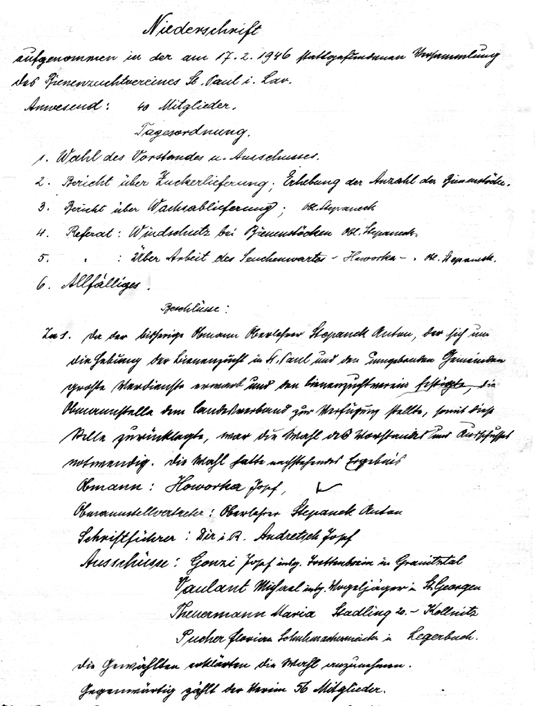 Niederschrift
aufgenommen in der am 17.2.1946 stattgefundenen Versammlung
des Bienenzuchtvereines St. Paul i. Lav.
Anwesend: 40 Mitglieder.
Tagesordnung.
1. Wahl des Vorstandes u. Ausschusses.
2. Bericht über Zuckerlieferung; Erhebung der Anzahl der Bienenstöcke.
3. Bericht über Wachsablieferung; Stepanek
4. Referat: Windschutz bei Bienenstöcken Stepanek.
5. " : Über Arbeit des Seuchenwartes - Howorka - . Stepanek.
6. Allfälliges.
Beschlüsse:
Zu 1. Da der bisherige Obmann Oberlehrer Stepanek Anton, der sich um
die Hebung der Bienenzucht in St. Paul und den Gemeinden
große Verdienste erwarb und den Bienenzuchtverein festigte, die
Obmannstelle dem Landesverband zur Verfügung stellte, somit diese
Stelle zurücklegte, war die Wahl des Vorstandes und Ausschusses
notwendig. Die Wahl hatte nachstehendes Ergebnis
Obmann: Howorka Josef,
Obmannstellvertreter: Oberlehrer Stepanek Anton
Schriftführer: Dir. i. R. Andretsch Josef
Ausschüsse: Gonzi Josef in Granitztal
Vaulant Michael vulgo Vogeljäger in St. Georgen
Theuermann Maria Stadling - Kollnitz
Pucher Florian in Legerbuch.
Die Gewählten erklärten die Wahl anzunehmen.
Gegenwärtig zählt der Verein 56 Mitglieder.